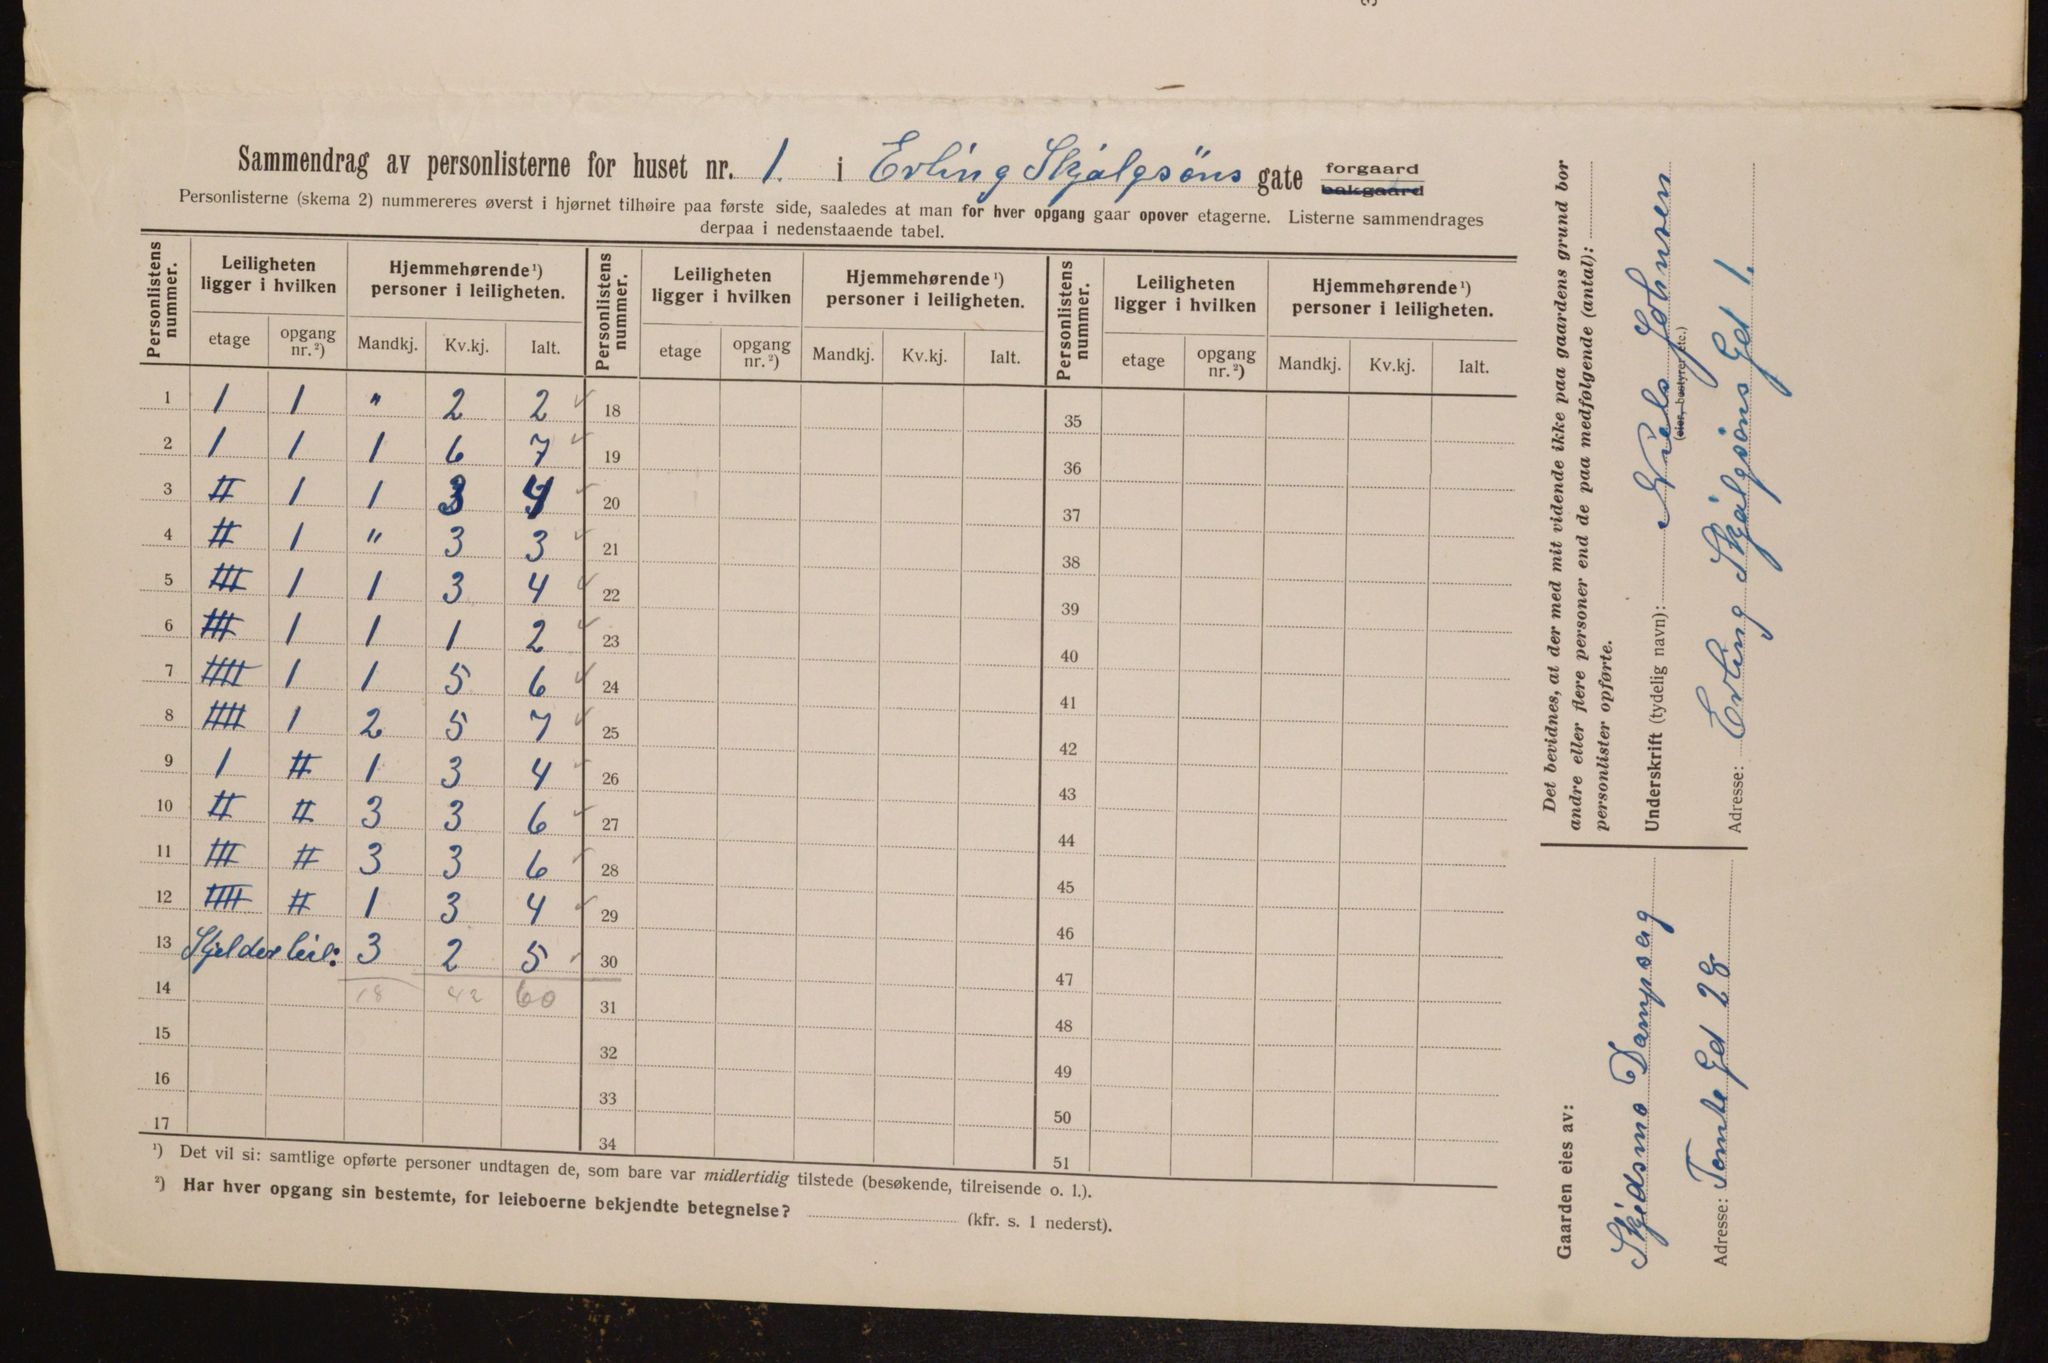 Sammendrag av personlisterne for huset nr. 1. i Erling Skjalgsöns gate forgaard bakgaard
Personlisterne (skema 2) nummereres øverst i hjørnet tilhøire paa første side, saaledes at man for hver opgang gaar opover etagerne. Listerne sammendrages
derpaa i nedenstaaende tabel.
Personlistens nummer. Leiligheten ligger i hvilken Hjemmehørende¹) personer i leiligheten. Personlistens nummer. Leiligheten ligger i hvilken Hjemmehørende¹) personer i leiligheten. Personlistens nummer. Leiligheten ligger i hvilken Hjemmehørende¹) personer i leiligheten.
etage opgang nr.²) Mandkj. Kv.kj. Ialt. etage opgang nr.²) Mandkj. Kv.kj. Ialt. etage opgang nr.²) Mandkj. Kv.kj. Ialt.
1 I I " 2 2 ✓ 18 35
2 I I 1 6 7 ✓ 19 36
3 II I 1 3 4 ✓ 20 37
4 II I " 3 3 ✓ 21 38
5 III I 1 3 4 ✓ 22 39
6 III I 1 1 2 ✓ 23 40
7 IIII I 1 5 6 ✓ 24 41
8 IIII I 2 5 7 ✓ 25 42
9 I II 1 3 4 ✓ 26 43
10 II II 3 3 6 ✓ 27 44
11 III II 3 3 6 ✓ 28 45
12 IIII II 1 3 4 ✓ 29 46
13 Kjelder leil: 3 2 5 ✓ 30 47
14 18 42 60 31 48
15 32 49
16 33 50
17 34 51
¹) Det vil si: samtlige opførte personer undtagen de, som bare var midlertidig tilstede (besøkende, tilreisende o. l.).
²) Har hver opgang sin bestemte, for leieboerne bekjendte betegnelse? (kfr. s. 1 nederst).
Det bevidnes, at der med mit vidende ikke paa gaardens grund bor
andre eller flere personer end de paa medfølgende (antal):
personlister opførte.
Underskrift (tydelig navn): Niels Johnsen
(eier, bestyrer etc.)
Adresse: Erling Skjalgsöns Gt 1.
Gaarden eies av:
Skjedsmo Dampsag
Adresse: Tomte Gt 28